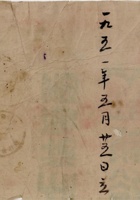 一九五一年五月廿五日立